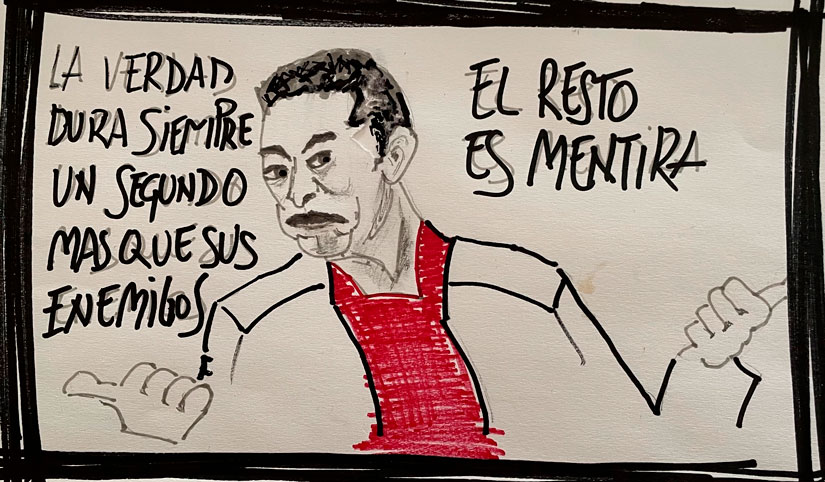 LA VERDAD
DURA SIEMPRE
UN SEGUNDO
MAS QUE SUS
ENEMIGOS
EL RESTO
ES MENTIRA